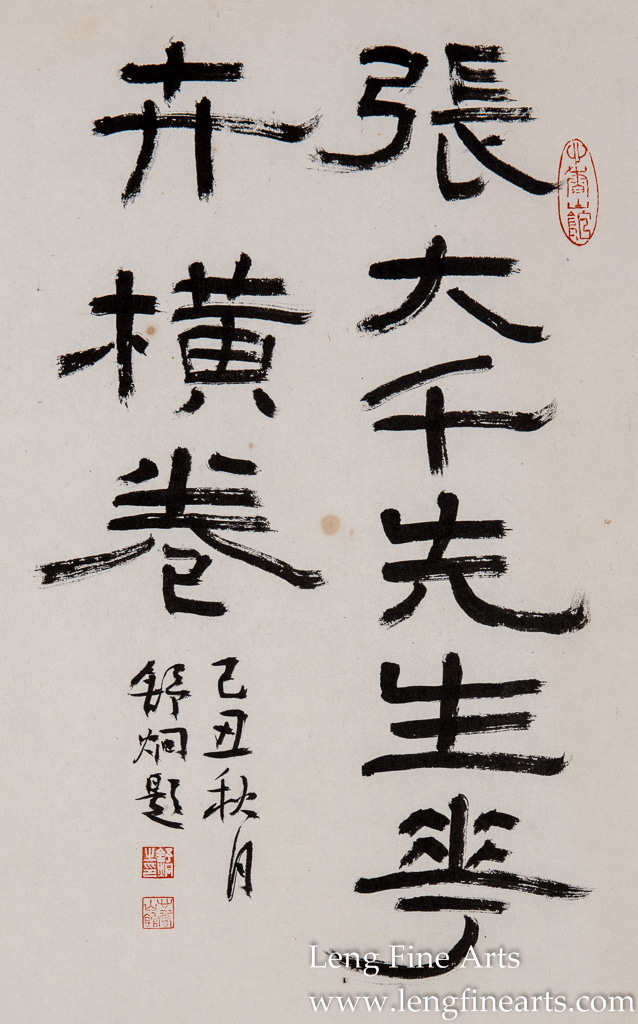 張大千先生華
卉橫卷
己丑秋月
舒炯題
Leng Fine Arts
www.lengfinearts.com